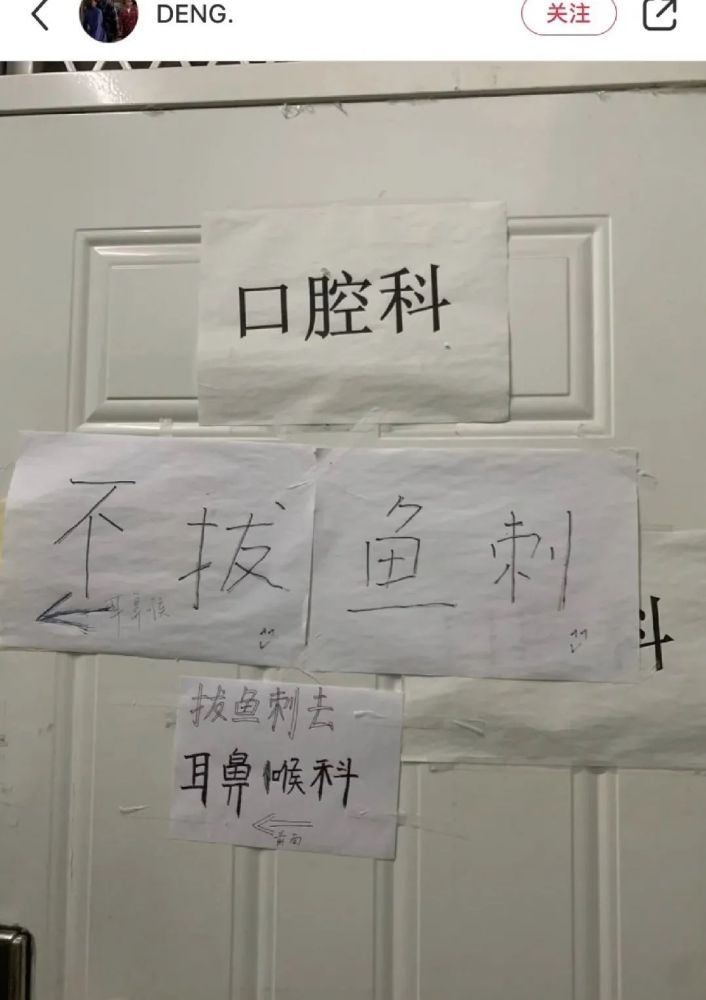 DENG.
关注
口腔科
不拔鱼刺
耳鼻喉
科
拔鱼刺去
耳鼻喉科